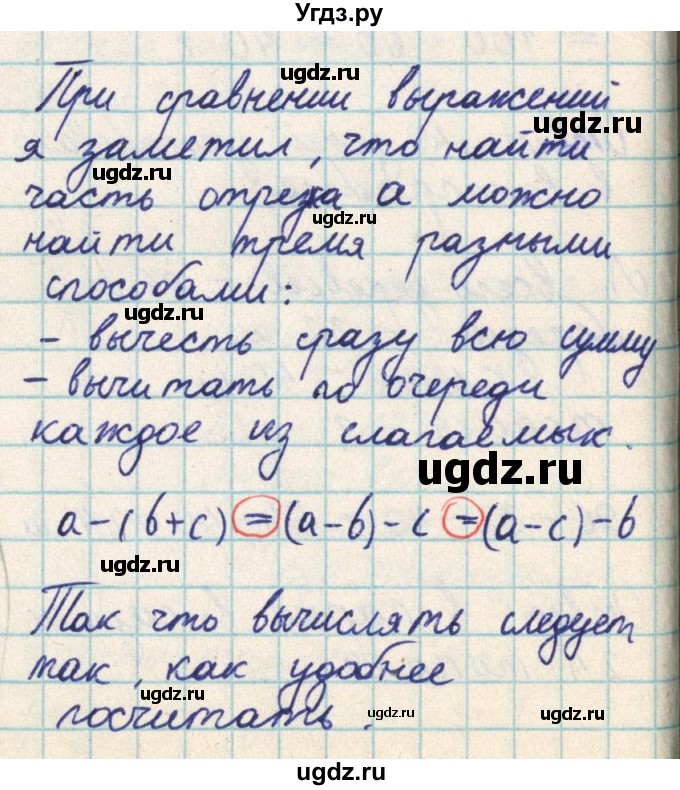 Угдз.ру
ugdz.ru
При сравнении выражений
ugdz.ru
я заметил, что найти
ugdz.ru
часть отрезка а можно
ugdz.ru
найти тремя разными
способами:
ugdz.ru
- вычесть сразу всю сумму
- вычитать по очереди
каждое из слагаемык.
ugdz.ru
a-(b+c)=(a-b)-c=(a-c)-b
ugdz.ru
Так что вычислять следует
ugdz.ru
так, как удобнее
ugdz.ru
посчитать.
ugdz.ru ugdz.ru
ugdz.ru